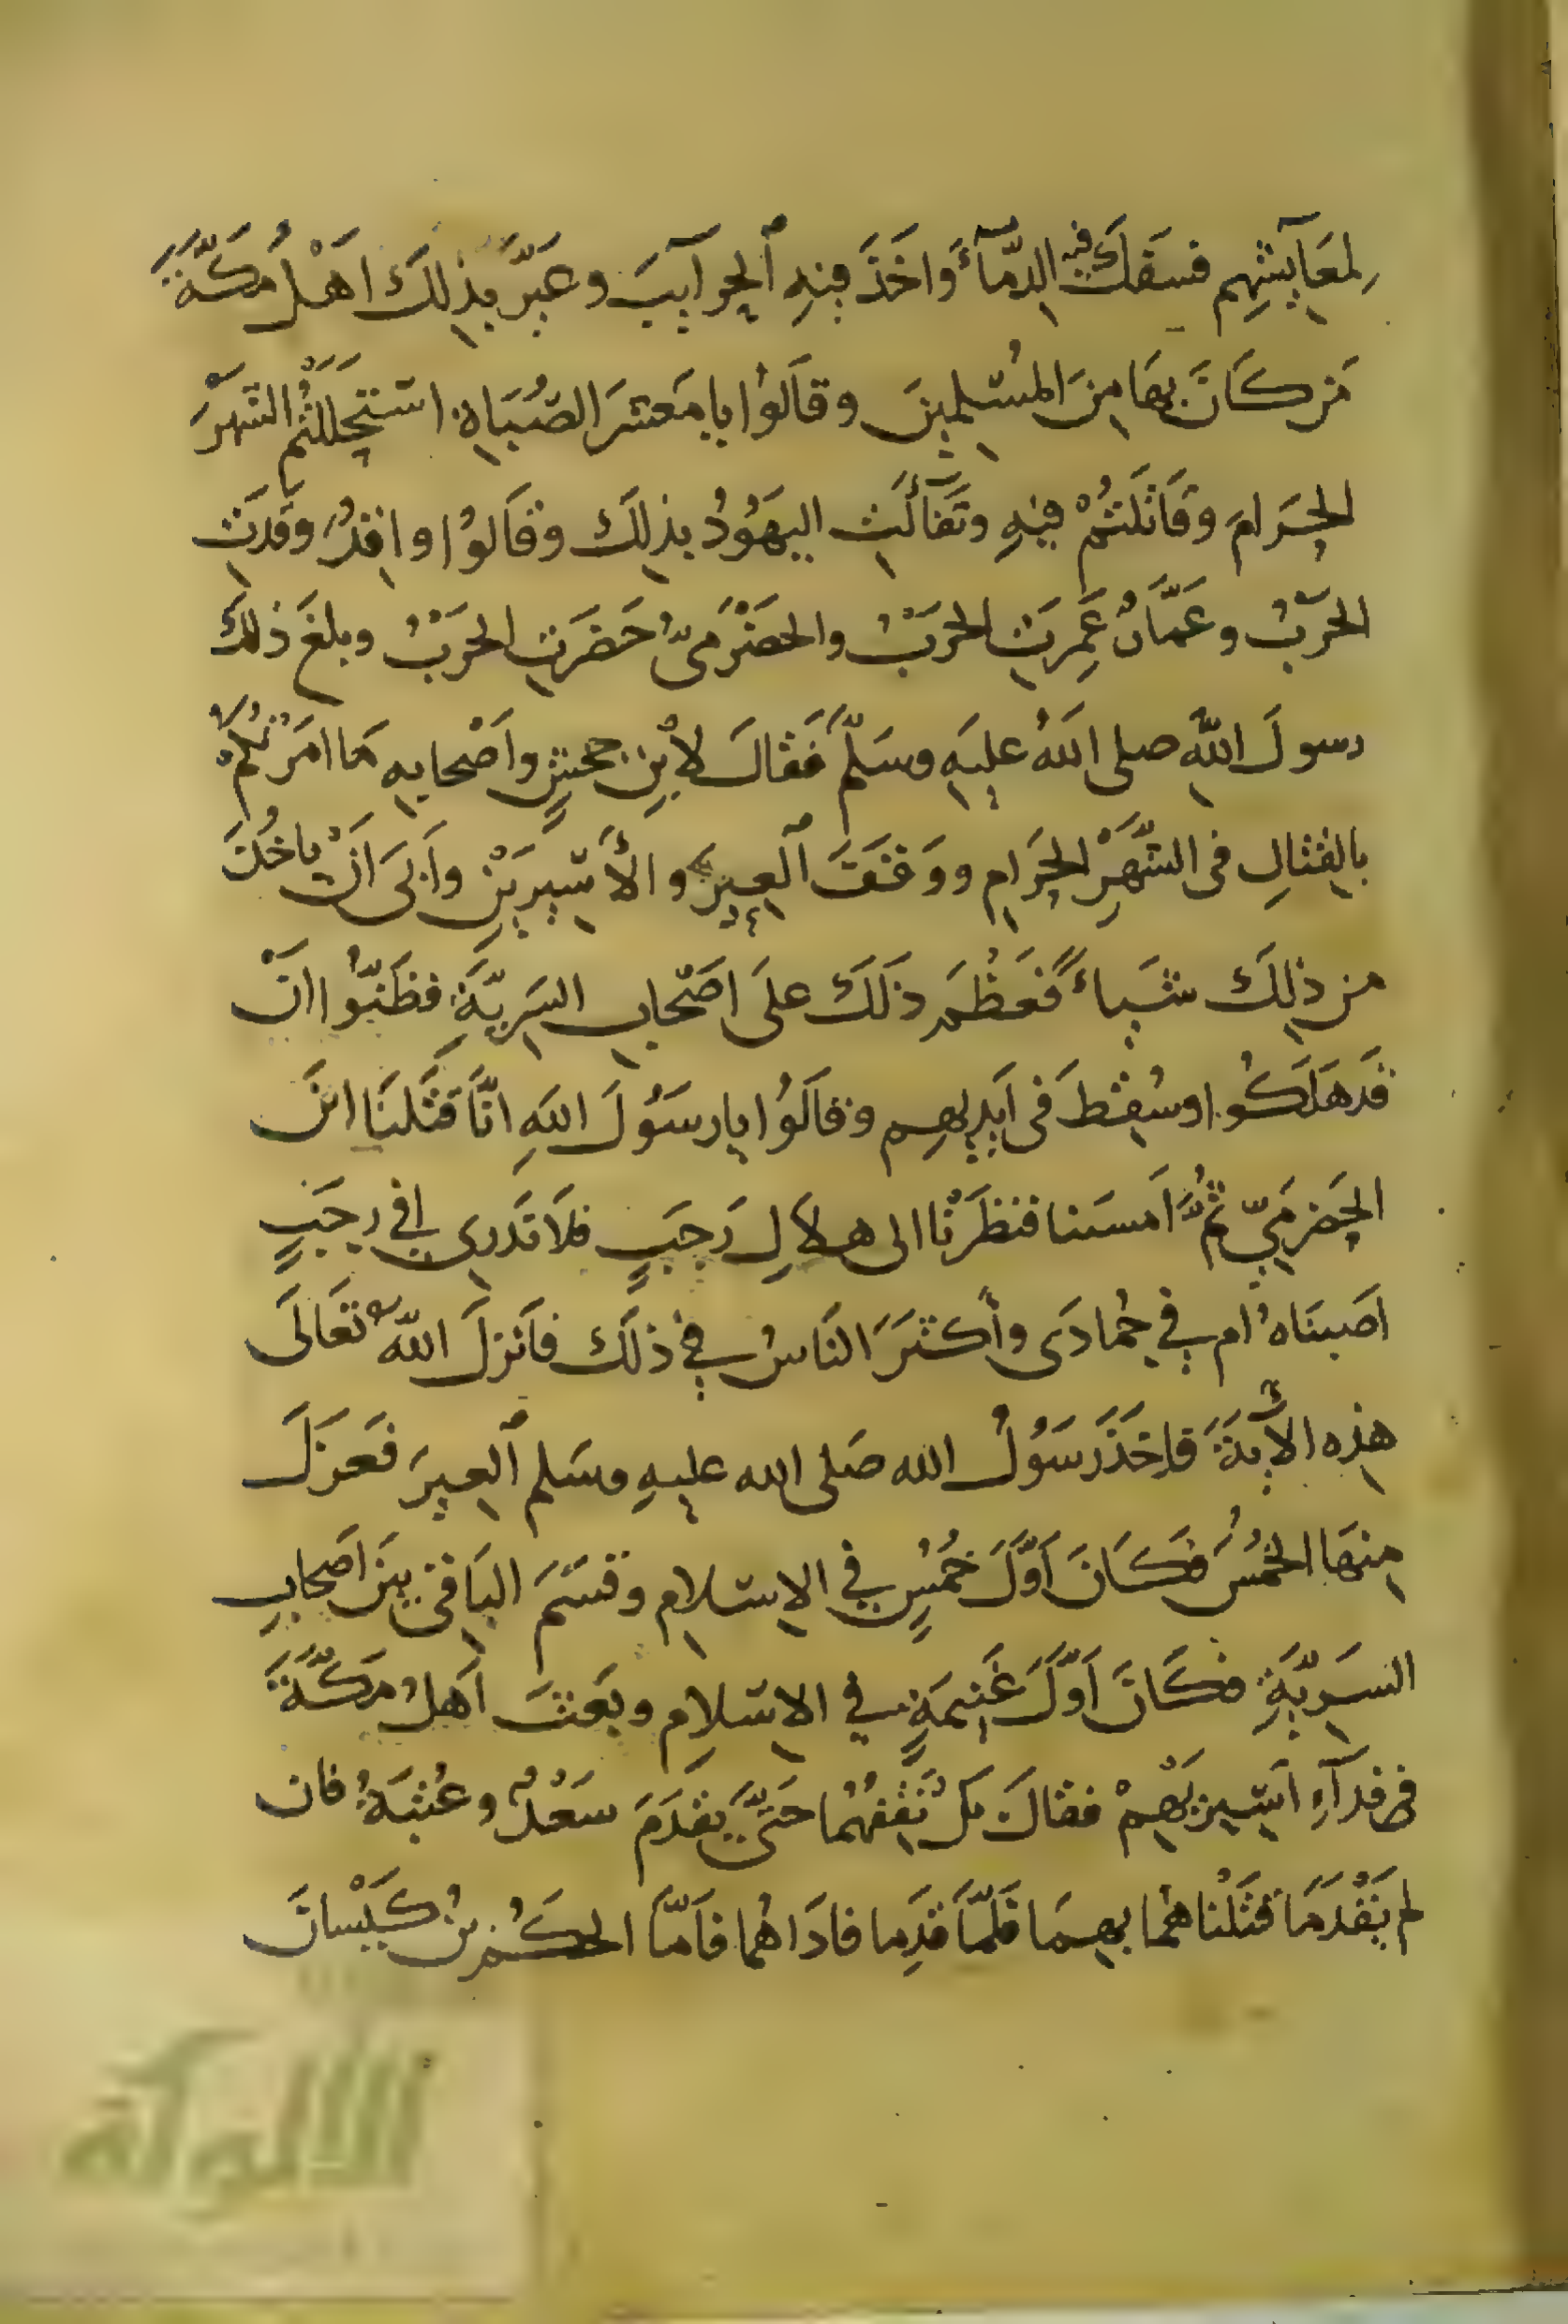 لِمَعَآيِشِهِم فسَفَكَ فيه الدِّمَآءَ وَاَخَذَ فِيْهِ ٱلْحِرَآيِبَ وعَيَّرَ بِذٰلِكَ اَهْلُ مَكَّةَ
مَن كَانَ بِهَا مِنَ المُسْلِمِينَ وقَالُوْا يا مَعشرَ الصُّبَاةِ اسْتحلَلْتُمْ الشَّهرَ
الحَرَامَ وَقَاتَلْتُمْ فِيْهِ وتَفَأَّلَتِ اليَهُوْدُ بِذلِكَ وقَالُوْا واقِدٌ وقَدَتِ
الحَرْبُ وعَمَّارٌ عَمِرَتِ الحَرْبُ والحَضْرَمِىُّ حَضَرَتِ الحَرْبُ وبلغَ ذلكَ
رسولَ اللّٰهِ صلى اللهُ عليهِ وسَلَّمَ فَقَالَ لاِبْنِ جحشٍ واَصْحابِهِ مَا امَرْتُكُمْ
بالقِتَالِ فى الشَّهْرِ الحَرَامِ ووَقَفَتَ ٱلعِيرَ والأَسِيرَيْنِ واَبَىَ اَنْ يَاخُذَ
من ذٰلِكَ شَيأً فَعَظُمَ ذَلكَ علَى اَصْحَابِ السَرِيَّةِ فظَنُّوْا انْ
قَد هَلَكُوا وسُقِطَ فى اَيدِيهِم وقَالَوُا يا رسَوُلَ اللهِ انَّا قَتَلنَا ابْنَ
الحَضرَمِيّ ثُمَّ اَمسَينا فنَظَرْنَا الى هلَالِ رَجَبٍ فلَا نَدرِي اَفي رجَبٍ
اصَبنَاهُ ام في جُمادَى وأكثَرَ النَّاسُ في ذلَك فاَنزلَ اللّٰهُ تَعَالَى
هذِهِ الأيَةَ فاَخَذَ رَسوُلُ الله صَلى الله عليهِ وسَلم ٱلعِيرَ فعَزَلَ
مِنهَا الخُمُسَ فكَانَ اَوَّلَ خُمُسٍ في الاِسلامِ وقَسَمَ البَاقىَ بينَ اَصحابِ
السَرِيَّةِ فكَانَ اَوَّلَ غَنِيمَةٍ في الاِسْلَامِ وبَعثَ اَهلُ مَكَّةَ
فى فِدَآءِ اَسِيرَيهِمْ فقالَ بَل نَقِفُهُمَا حَتَّى يَقدَمَ سَعْدٌ وعُتْبَةُ فان
لم يَقْدَمَا قَتَلْنَاهُمَا بِهِمَا فَلَمَّا قَدِما فادَاهُما فاَمَّا الحكَم بْنُ كَيْسَانَ
الألوكة